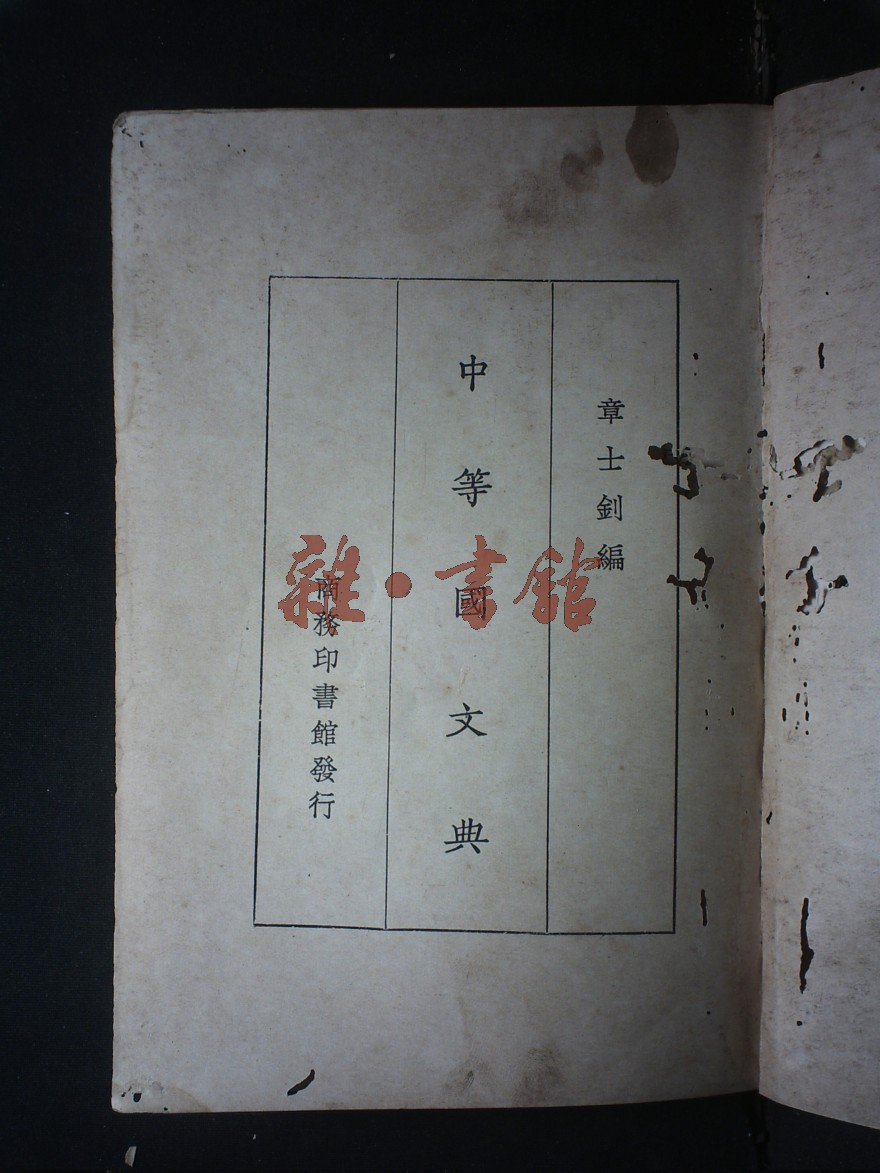 章士釗編
中等國文典
商務印書館發行
雜·書館